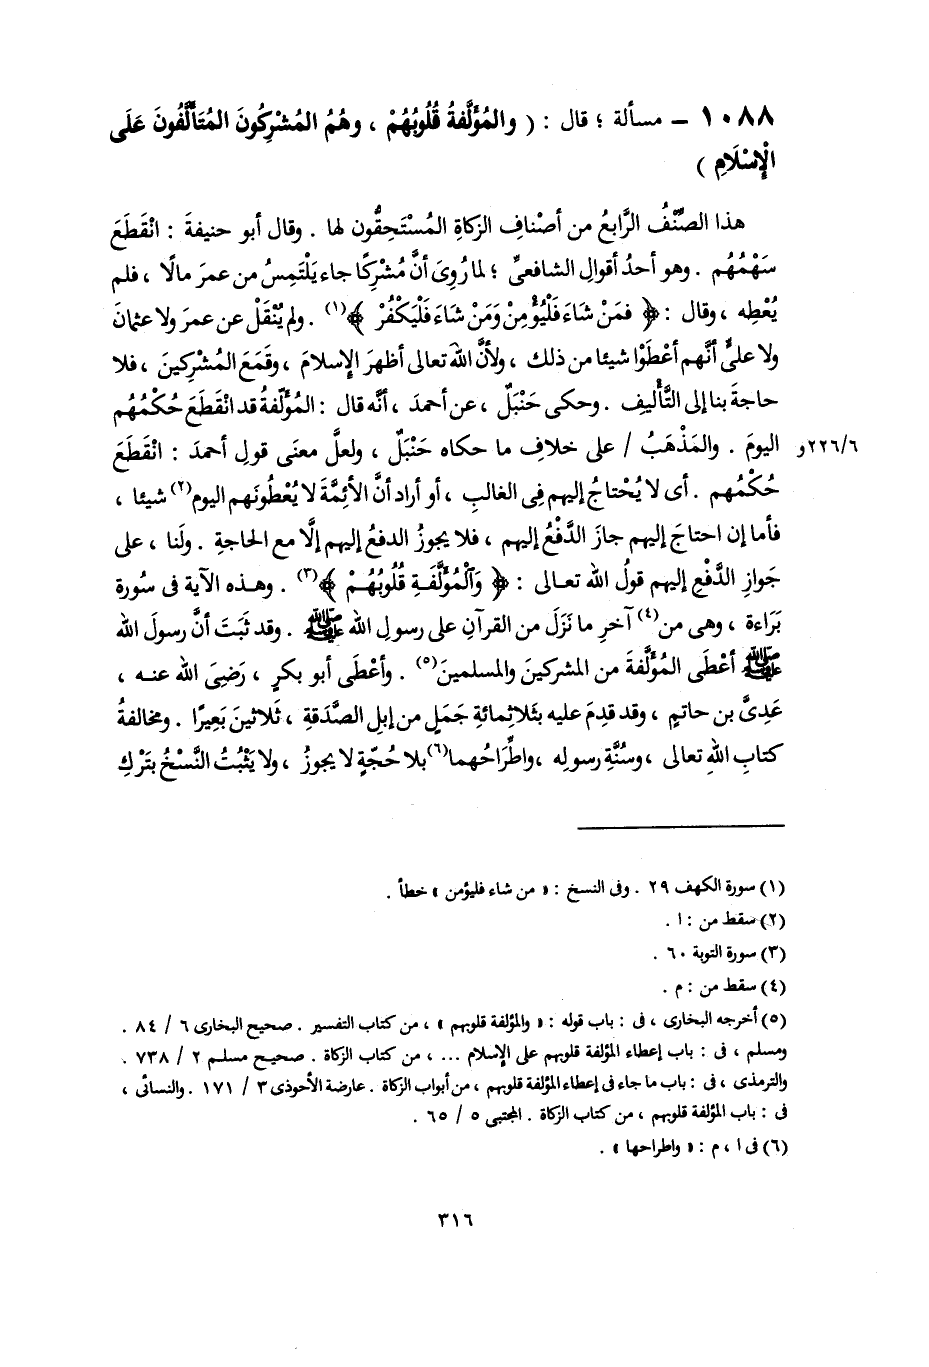 ١٠٨٨ – مسألة ؛ قال : ( والمُؤَلَّفةُ قُلُوبُهُمْ ، وهُمُ المُشْرِكُونَ المُتَأَلَّفُونَ عَلَى
الْإِسْلَامِ )
هذا الصِّنْفُ الرَّابِعُ من أصْنافِ الزكاةِ المُسْتَحِقُّون لها . وقال أبو حنيفةَ : انْقَطَعَ
سَهْمُهُم . وهو أحدُ أقوالِ الشافعىِّ ؛ لما رُوِىَ أنَّ مُشْرِكًا جاء يَلْتَمِسُ من عمرَ مالًا ، فلم
يُعْطِه ، وقال : ﴿ فَمَنْ شَاءَ فَلْيُؤْمِنْ وَمَنْ شَاءَ فَلْيَكْفُرْ ﴾(١) . ولم يُنْقَلْ عن عمرَ ولا عثمانَ
ولا علىٍّ أنَّهم أعْطَوْا شيئا من ذلك ، ولأنَّ اللهَ تعالى أظهرَ الإسلامَ ، وقَمَعَ المُشْرِكينَ ، فلا
حاجةَ بنا إلى التَّأْليفِ . وحكى حَنْبَلٌ ، عن أحمدَ ، أنَّه قال : المُؤَلّفةُ قد انْقَطَعَ حُكْمُهُم
اليومَ . والمَذْهَبُ / على خلافِ ما حكاه حَنْبَلٌ ، ولعلَّ معنَى قولِ أحمدَ : انْقَطَعَ ٢٢٦/٦و
حُكْمُهم . أى لا يُحْتاجُ إليهم فِى الغالبِ ، أو أراد أنَّ الأئِمَّةَ لا يُعْطُونَهم اليوم(٢) شيئا ،
فأما إن احتاجَ إليهم جازَ الدَّفْعُ إليهم ، فلا يجوزُ الدفعُ إليهم إلَّا مع الحاجةِ . ولَنا ، على
جَوازِ الدَّفْعِ إليهم قولُ الله تعالى : ﴿ وَالْمُؤَلَّفَةِ قُلُوبُهُمْ ﴾(٣) . وهذه الآية فى سُورة
بَرَاءة ، وهى من(٤) آخرِ ما نَزَلَ من القرآنِ على رسولِ الله ﷺ . وقد ثَبَتَ أنَّ رسولَ الله
ﷺ أعْطَى المُؤلَّفةَ من المشركينَ والمسلمينَ(٥) . وأعْطَى أبو بكرٍ ، رَضِىَ الله عنه ،
عَدِىَّ بن حاتمٍ ، وقد قدِمَ عليه بثَلاثِمائةِ جَمَلٍ من إبِلِ الصَّدَقةِ ، ثَلاثينَ بَعِيرًا . ومخالفةُ
كتابِ اللهِ تعالى ، وسُنَّةِ رسولِه ، واطِّرَاحُهما(٦) بلا حُجّةٍ لا يجوزُ ، ولا يَثْبُتُ النَّسْخُ بتَرْكِ
(١) سورة الكهف ٢٩ . وفى النسخ : « من شاء فليؤمن » خطأ .
(٢) سقط من : ا .
(٣) سورة التوبة ٦٠ .
(٤) سقط من : م .
(٥) أخرجه البخارى ، فى : باب قوله : « والمؤلفة قلوبهم » ، من كتاب التفسير . صحيح البخارى ٦ / ٨٤ .
ومسلم ، فى : باب إعطاء المؤلفة قلوبهم على الإسلام ... ، من كتاب الزكاة . صحيح مسلم ٢ / ٧٣٨ .
والترمذى ، فى : باب ما جاء فى إعطاء المؤلفة قلوبهم ، من أبواب الزكاة . عارضة الأحوذى ٣ / ١٧١ . والنسائى ،
فى : باب المؤلفة قلوبهم ، من كتاب الزكاة . المجتبى ٥ / ٦٥ .
(٦) فى ا ، م : « واطراحها » .
٣١٦